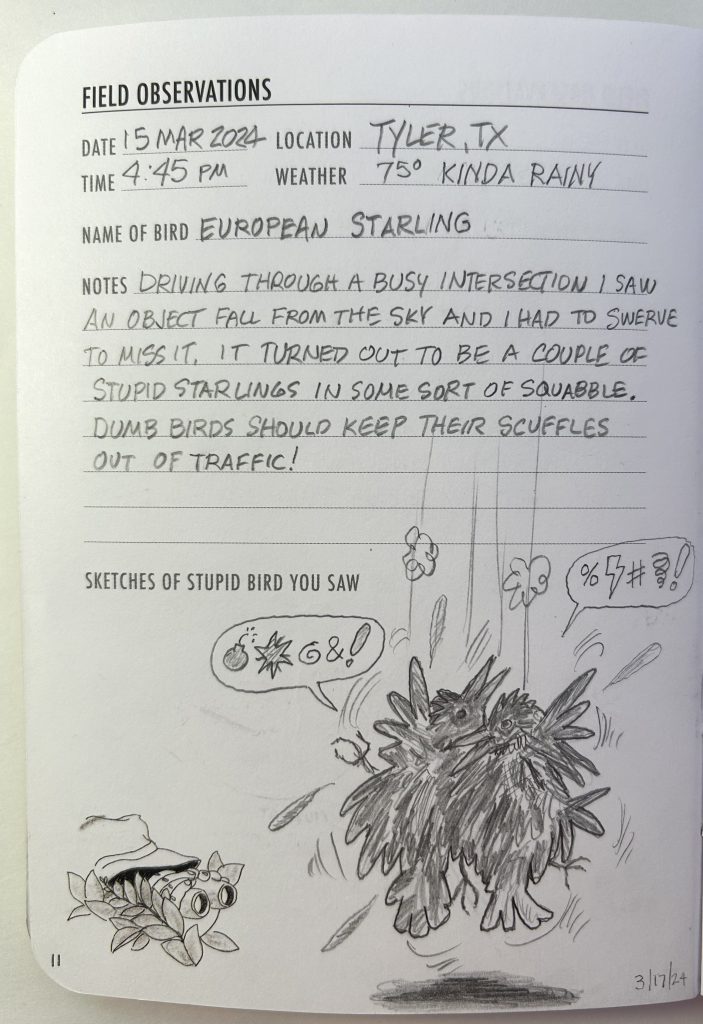 FIELD OBSERVATIONS
DATE 15 MAR 2024 LOCATION TYLER, TX
TIME 4:45 PM WEATHER 75° KINDA RAINY
NAME OF BIRD EUROPEAN STARLING
NOTES DRIVING THROUGH A BUSY INTERSECTION I SAW
AN OBJECT FALL FROM THE SKY AND I HAD TO SWERVE
TO MISS IT. IT TURNED OUT TO BE A COUPLE OF
STUPID STARLINGS IN SOME SORT OF SQUABBLE.
DUMB BIRDS SHOULD KEEP THEIR SCUFFLES
OUT OF TRAFFIC!
SKETCHES OF STUPID BIRD YOU SAW
%⚡#!
💣💥@&!
11
3/17/24